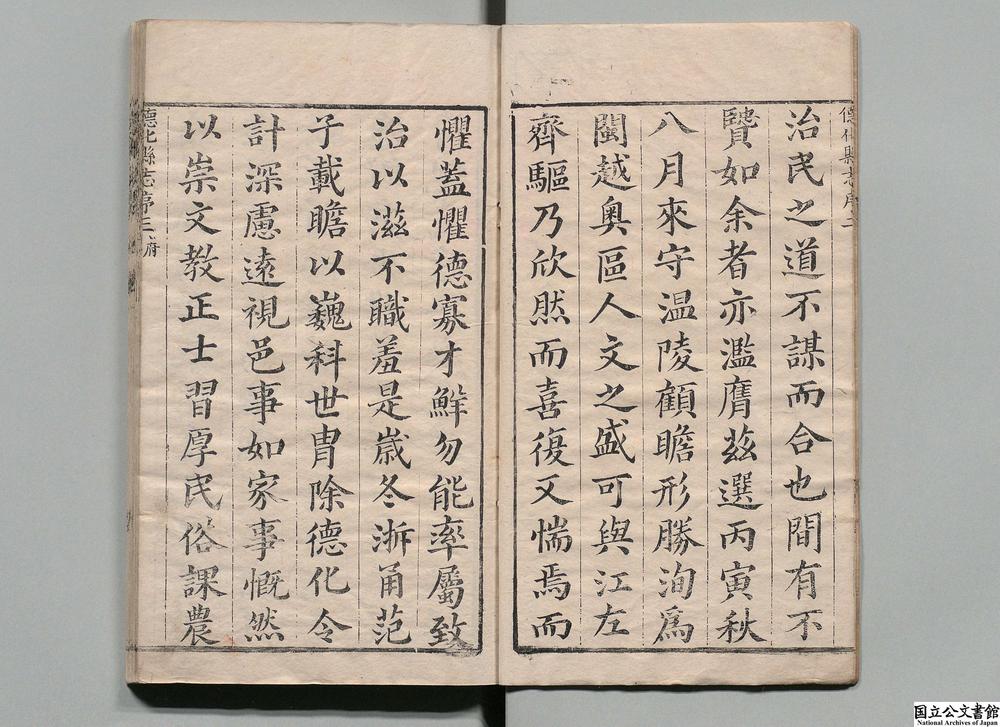 德化縣志序二
治民之道不謀而合也間有不
贒如余者亦濫膺茲選丙寅秋
八月來守温陵顧瞻形勝洵爲
閩越奧區人文之盛可與江左
齊驅乃欣然而喜復又惴焉而
懼蓋懼德寡才鮮勿能率屬致
治以滋不職羞是歲冬浙甬范
子載瞻以巍科世胄除德化令
計深慮遠視邑事如家事慨然
以崇文教正士習厚民俗課農
德化縣志序三 府
国立公文書館
National Archives of Japan